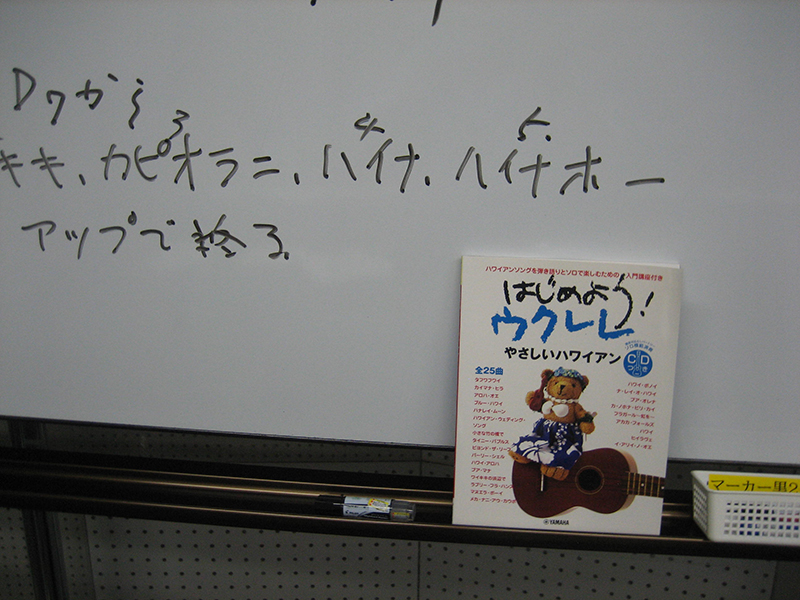 D7から
3 4 5.
キキ、カピオラニ、ハイナ、ハイナホー
アップで終る
ハワイアンソングを弾き語りとソロで楽しむための 入門講座付き
はじめよう!
ウクレレ
やさしいハワイアン
CD
つき
全25曲
タフワフワイ
カイマナ・ヒラ
アロハ・オエ
ブルー・ハワイ
ハナレイ・ムーン
ハワイアン・ウェディング・
ソング
小さな竹の橋で
タイニー・バブルス
ビヨンド・ザ・リーフ
パーリー・シェル
ハワイ・アロハ
プア・マナ
ワイキキの浜辺で
ラブリー・フラ・ハンズ
マヌエラ・ボーイ
メカ・ナニ・アウ・カウポ
ハワイ・ポノイ
ナ・レイ・オ・ハワイ
プア・オレナ
カ・ノホナ・ピリ・カイ
フラガール〜虹を〜
アカカ・フォールズ
ハワイ
ヒイラヴェ
イ・アリイ・ノ・オエ
YAMAHA
マーカー黒2